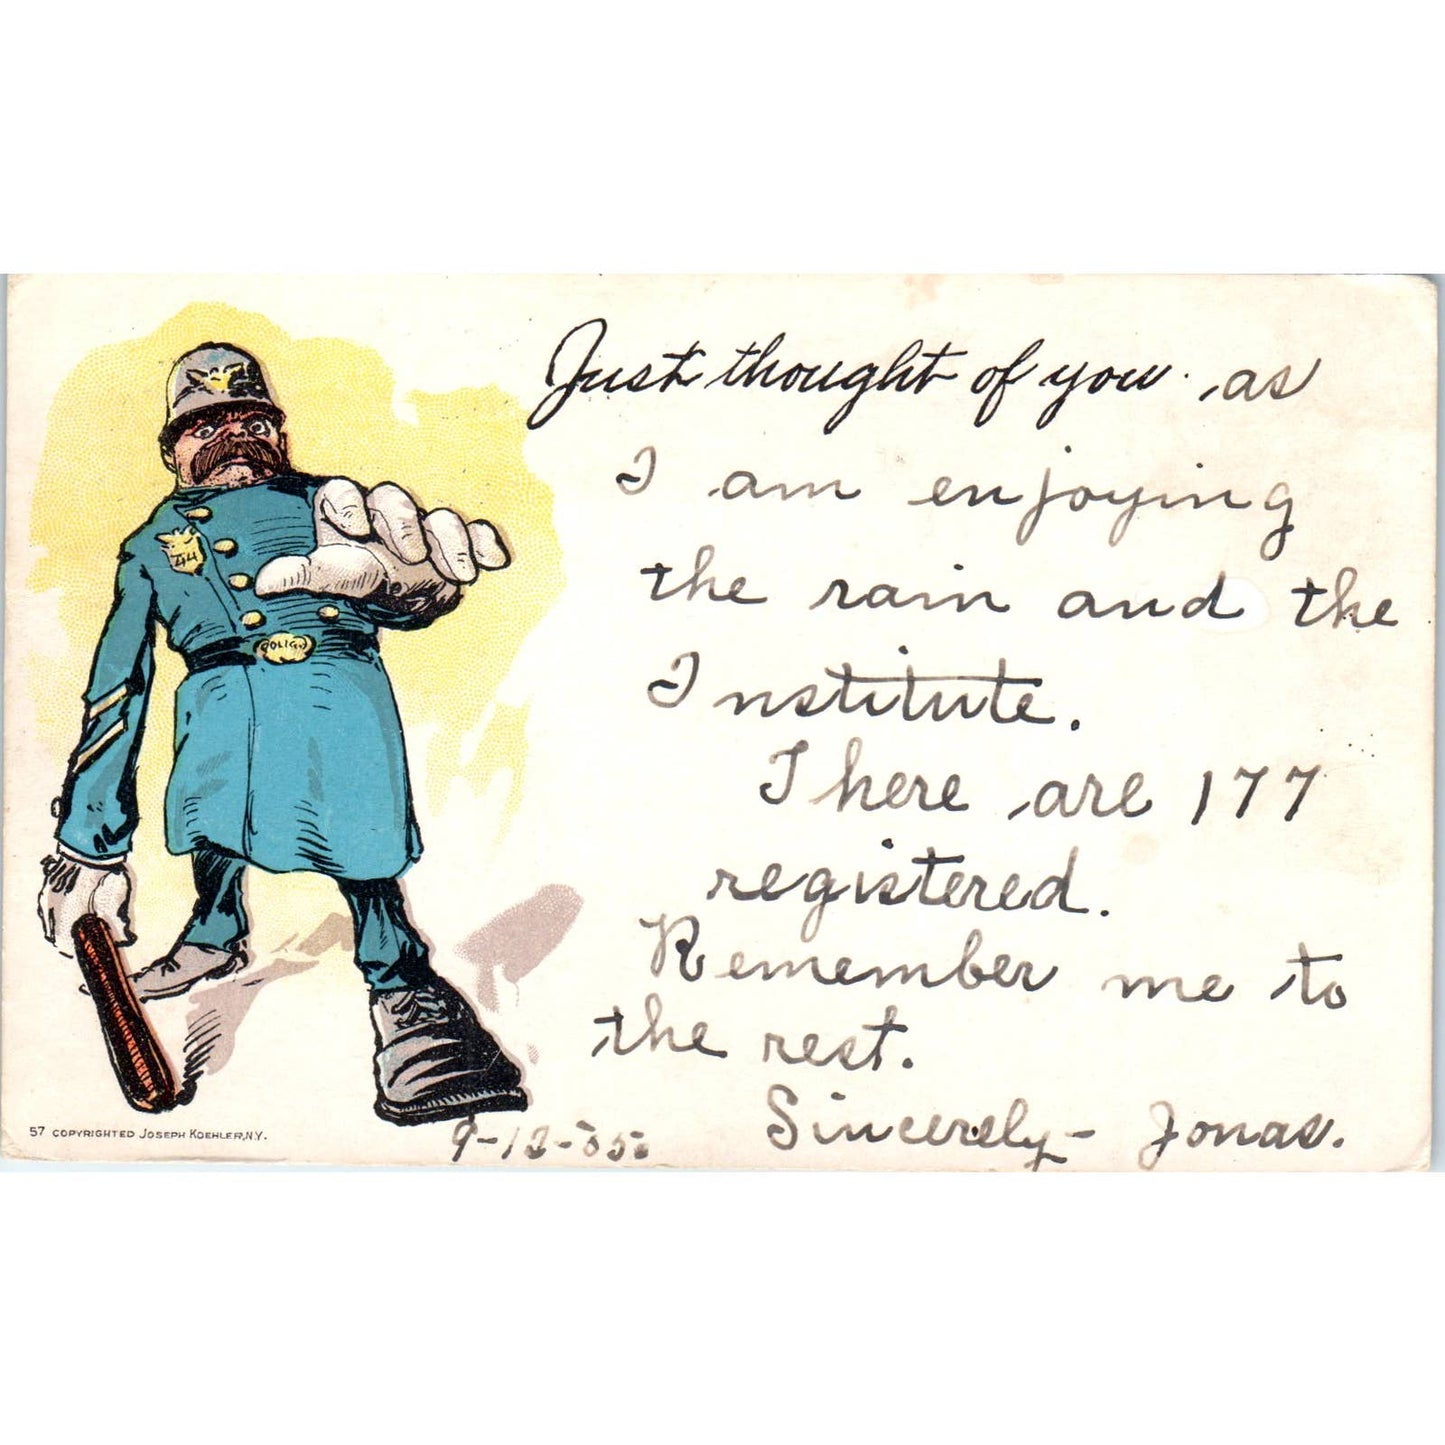 Just thought of you. as
I am enjoying
the rain and the
Institute.
There are 177
registered.
Remember me to
the rest.
Sincerely - Jonas.
9-12-'05.
44
POLICE
57 COPYRIGHTED JOSEPH KOEHLER, N.Y.